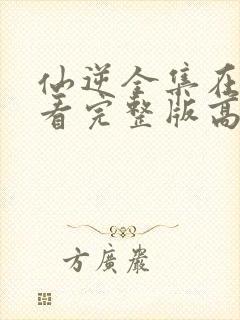 仙逆全集在
看完整版高
方廣巖